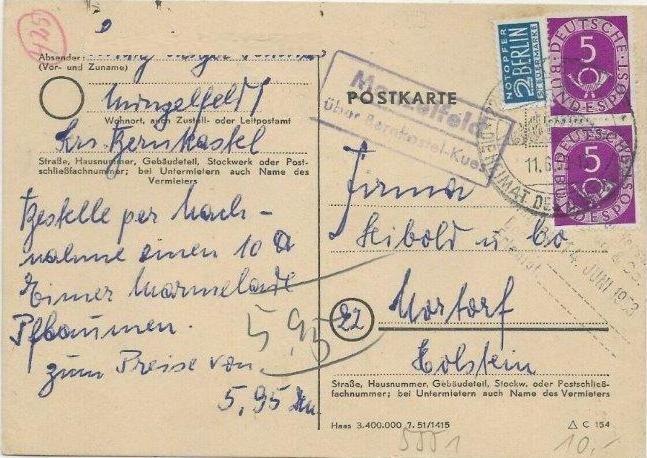 452
Absender:
(Vor- und Zuname)
Monzelfeld
Wohnort, auch Zustell- oder Leitpostamt
Krs. Bernkastel
Straße, Hausnummer, Gebäudeteil, Stockwerk oder Post-
schließfachnummer; bei Untermietern auch Name des
Vermieters
Bestelle per Nach-
nahme einen 10 ℔
Eimer Marmelade
Pflaumen.
zum Preise von
5,95 DM
5,95
POSTKARTE
Monzelfeld
über Bernkastel-Kues
NOTOPFER
2 BERLIN
STEUERMARKE
5
DEUTSCHE
BUNDESPOST
5
DEUTSCHE
BUNDESPOST
11.6.
14. JUNI 1953
Firma
Seibold u Co
22 Nortorf
Holstein
Straße, Hausnummer, Gebäudeteil, Stockw. oder Postschließ-
fachnummer; bei Untermietern auch Name des Vermieters
Haas 3.400.000 7.51/1415
△ C 154
5551
10,-